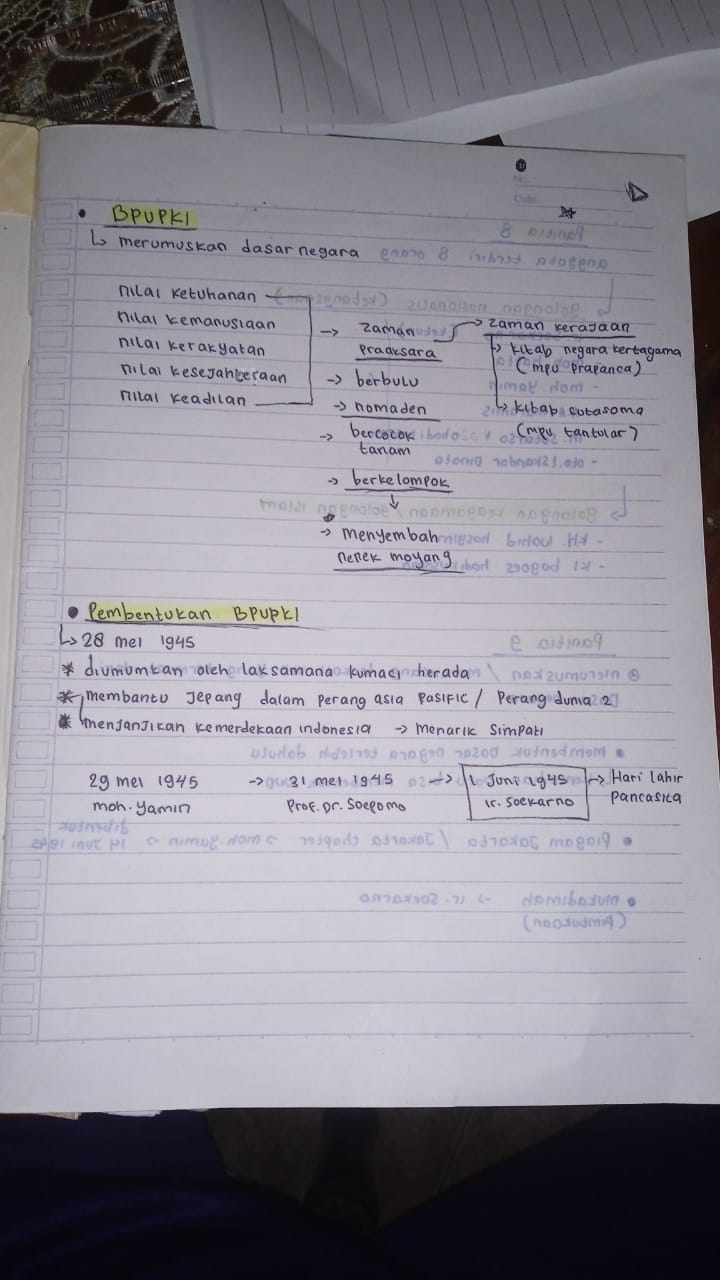 No.
Date
• BPUPKI
↳ merumuskan dasar negara
nilai ketuhanan
nilai kemanusiaan
nilai kerakyatan
nilai kesejahteraan
nilai keadilan
→ zaman
praaksara
→ berbulu
→ nomaden
→ bercocok
tanam
→ berkelompok
↓
→ menyembah
nenek moyang
→ zaman kerajaan
→ kitab negara kertagama
(mpu prapanca)
→ kitab sutasoma
(mpu tantular)
• Pembentukan BPUPKI
↳ 28 mei 1945
* diumumkan oleh laksamana kumaci herada
* membantu Jepang dalam perang asia pasific / Perang dunia 2
* menjanjikan kemerdekaan indonesia → menarik simpati
29 mei 1945 → 31 mei 1945 → 1 Juni 1945 → Hari lahir
moh. yamin Prof. Dr. Soepomo Ir. Soekarno Pancasila